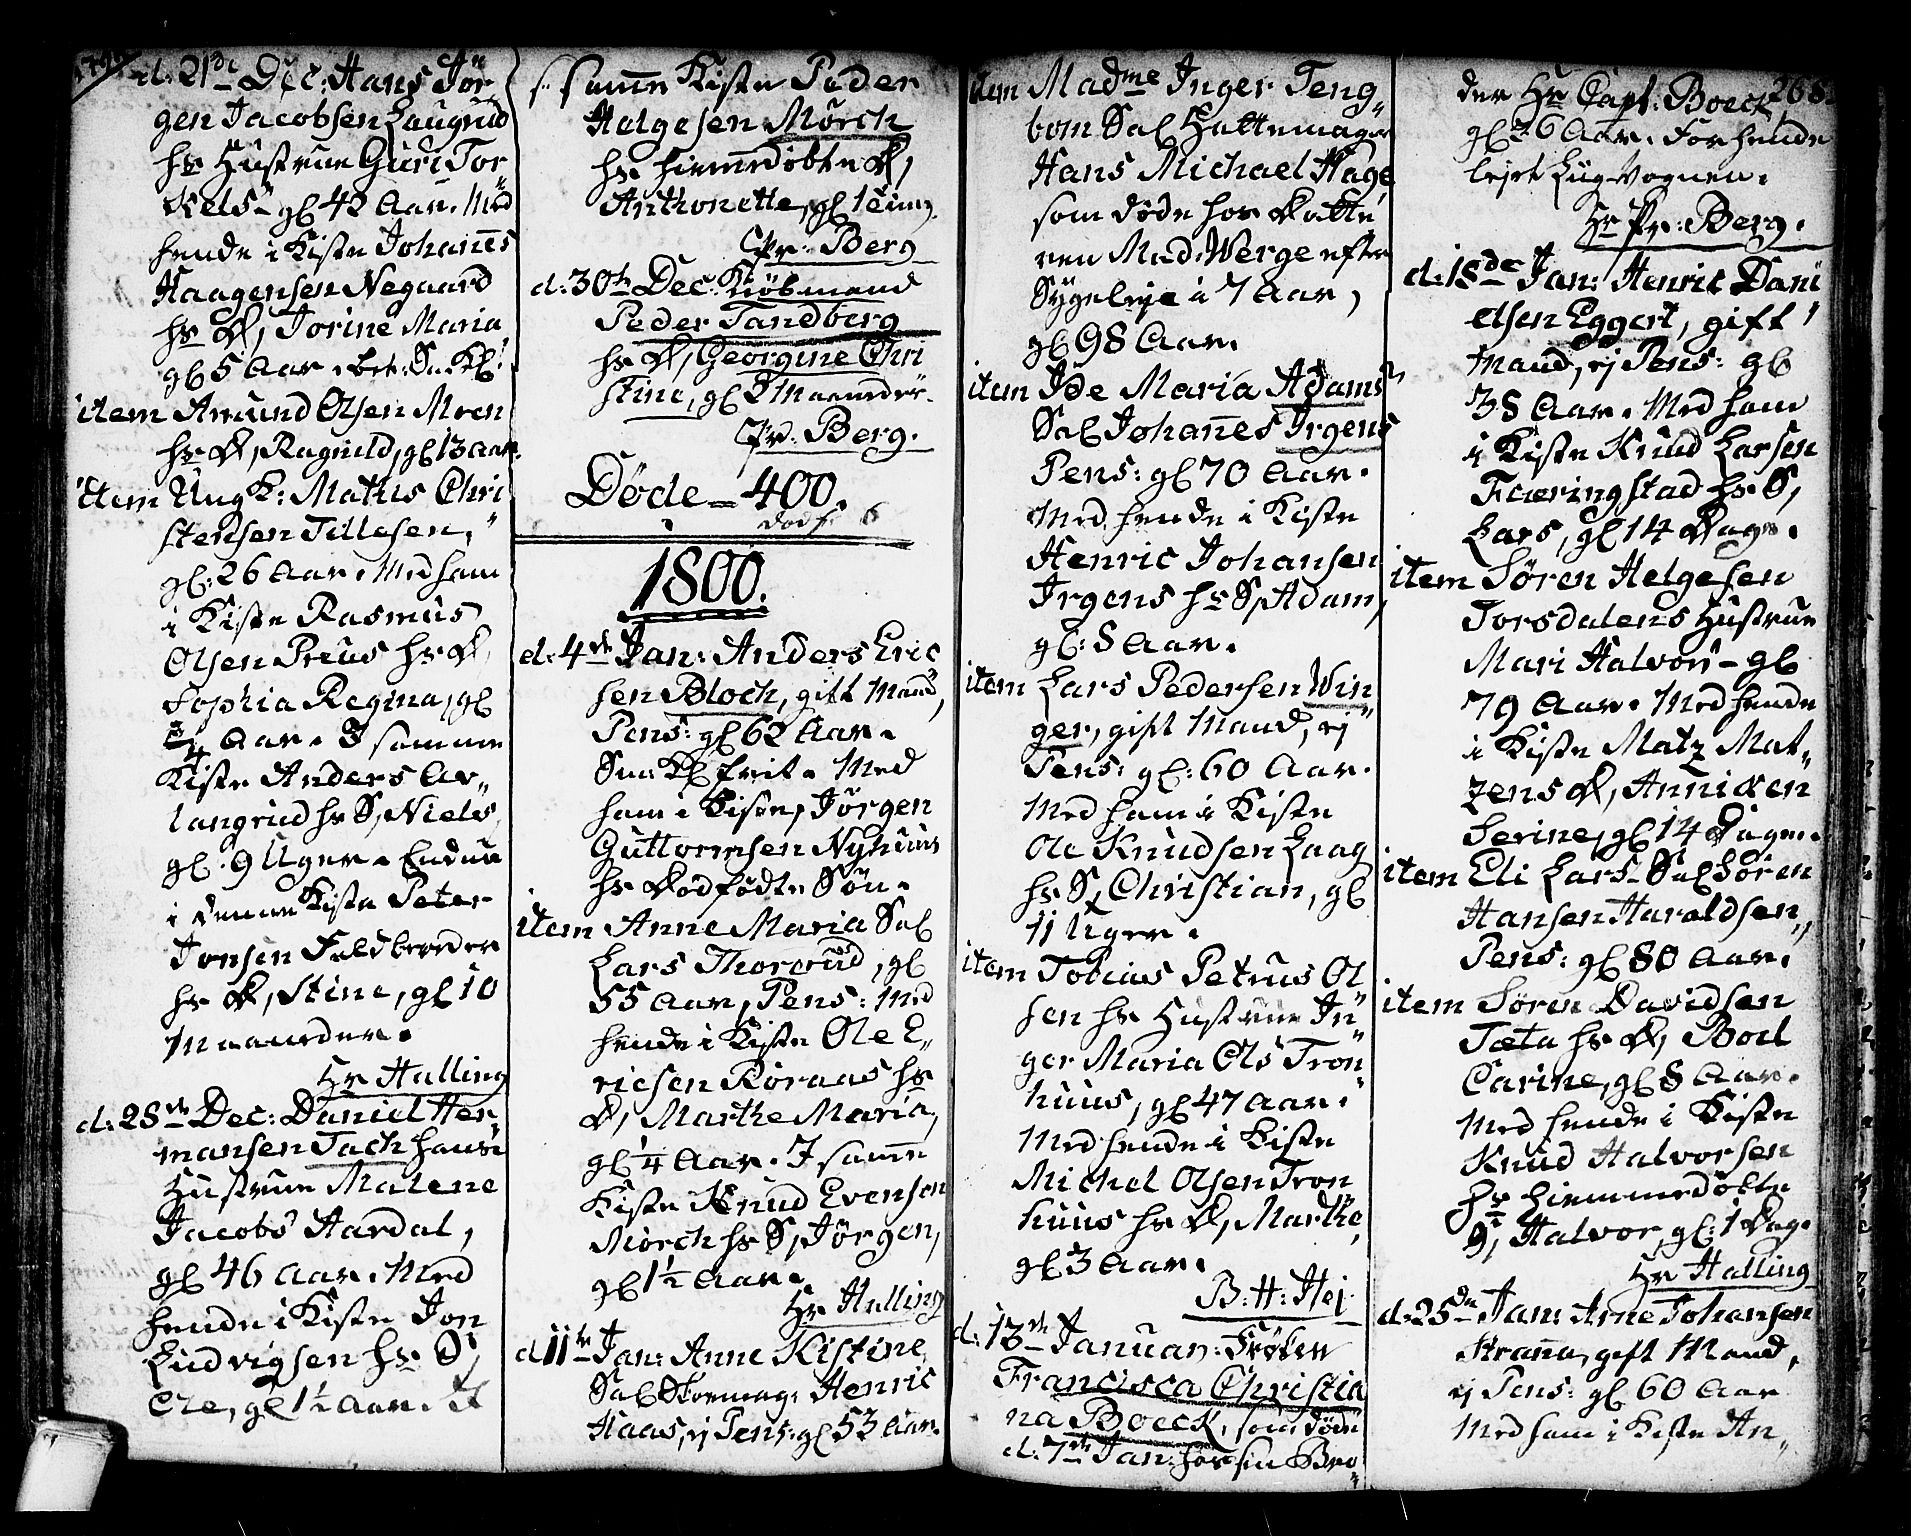 d: 21de Dec: Hans Jör
gen Jacobsen Laugrud
hs Hustrue Guri Tor
kels- gl 42 Aar. Med
hende i Kiste Johañes
Haagensen Negaard
hs D, Torine Maria
gl 5 Aar. bet: Sa: Kl:
item Amund Olsen Moen
hs D, Ragnild, gl 13 Aar.
item Ung K: Mathis Chri
stensen Tillesen,
gl: 26 Aar. Med ham
i Kiste Rasmus
Olsen Preus hs D,
Sophia Regina, gl
3/4 Aar. I samme
Kiste Anders Ar-
langrud hs S, Niels,
gl. 9 Uger. Endnu
i denne Kiste Peter
Jonsen Feldbereder
hs D, Stine, gl 10
Maaneder.
Hr Halling
d: 28de Dec: Daniel Her
mansen Tach hans
Hustrue Malene
Jacobs Aardal,
gl 46 Aar. Med
hende i Kiste Jon
Ludvigsen hs S,
Ole, gl 1½ Aar. I
samme Kiste Peder
Helgesen Mørch
hs hiemedøbte D,
Anthonette, gl 1 Time.
Pr: Berg
d: 30te Dec: Kiøbmand
Peder Tandberg
hs D, Georgine Chri
stine, gl 2 Maaneder.
Pr: Berg.
Døde - 400.
dødf. 6
1800.
d: 4de Jan: Anders Eric
sen Bloch, gift Mand,
Pens: gl 62 Aar.
Sa: Kl frit. Med
ham i Kiste, Jørgen
Guttormsen Nyhuus
hs dødfødte Søn.
item Anne Maria Sal
Lars Thorrud, gl
55 Aar, Pens: Med
hende i Kiste Ole E-
ricsen Röraas hs
D, Marthe Maria,
gl ¼ Aar. I same
Kiste Knud Evensen
Mörch hs S, Jörgen,
gl 1½ Aar.
Hr Halling
d 11te Jan: Anne Kistine
Sal Skomag: Henric
Haas, ej Pens: gl 53 Aar.
item Madme Inger Teng
bom Sal Hattemager
Hans Michael Hage
som døde hos Datte
ren Mad: Werge efter
Sygeleje i 7 Aar,
gl 98 Aar.
item Ide Maria Adams
Sal Johañes Irgens
Pens: gl 70 Aar.
Med hende i Kiste
Henric Johansen
Irgens hs S, Adam,
gl: 8 Aar.
item Lars Pedersen Win
ger, gift Mand, ej
Pens: gl: 60 Aar.
Med ham i Kiste
Ole Knudsen Laag
hs S, Christian, gl
11 Uger.
item Tobias Petrus Ol
sen hs Hustrue In
ger Maria Ols Tron
huus, gl 47 Aar.
Med hende i Kiste
Michel Olsen Tron
huus hs D, Marthe,
gl 3 Aar.
B: H: Hej
d: 13de Januar: Frøken
Francisca Christia
na Boeck, som døde
d: 7de Jan: hos sin Bro
268.
der Hr Capt: Boeck
gl 26 Aar. For hende
lejet Liig-Vognen.
Hr Pr: Berg.
d: 18de Jan: Henric Dani
elsen Eggert, gift
Mand, ej Pens: gl
38 Aar. Med ham
i Kiste Knud Larsen
Færingstad hs S,
Lars, gl 14 Dage.
item Søren Helgesen
Torsdalens Hustrue
Mari Halvor- gl
79 Aar. Med hende
i Kiste Matz Mat-
zens D, Anniken
Serine, gl 14 Dage.
item Eli Lars- Sal Søren
Hansen Haraldsen,
Pens: gl 80 Aar.
item Søren Davidsen
Tæta hs D, Boel
Carine, gl 8 Aar.
Med hende i Kiste
Knud Halvorsen
hs hiemmedøbte
S, Halvor, gl: 1 Dag.
Hr Halling
d: 25de Jan: Arne Johansen
Krana, gift Mand,
ej Pens: gl 60 Aar
Med ham i Kiste An-